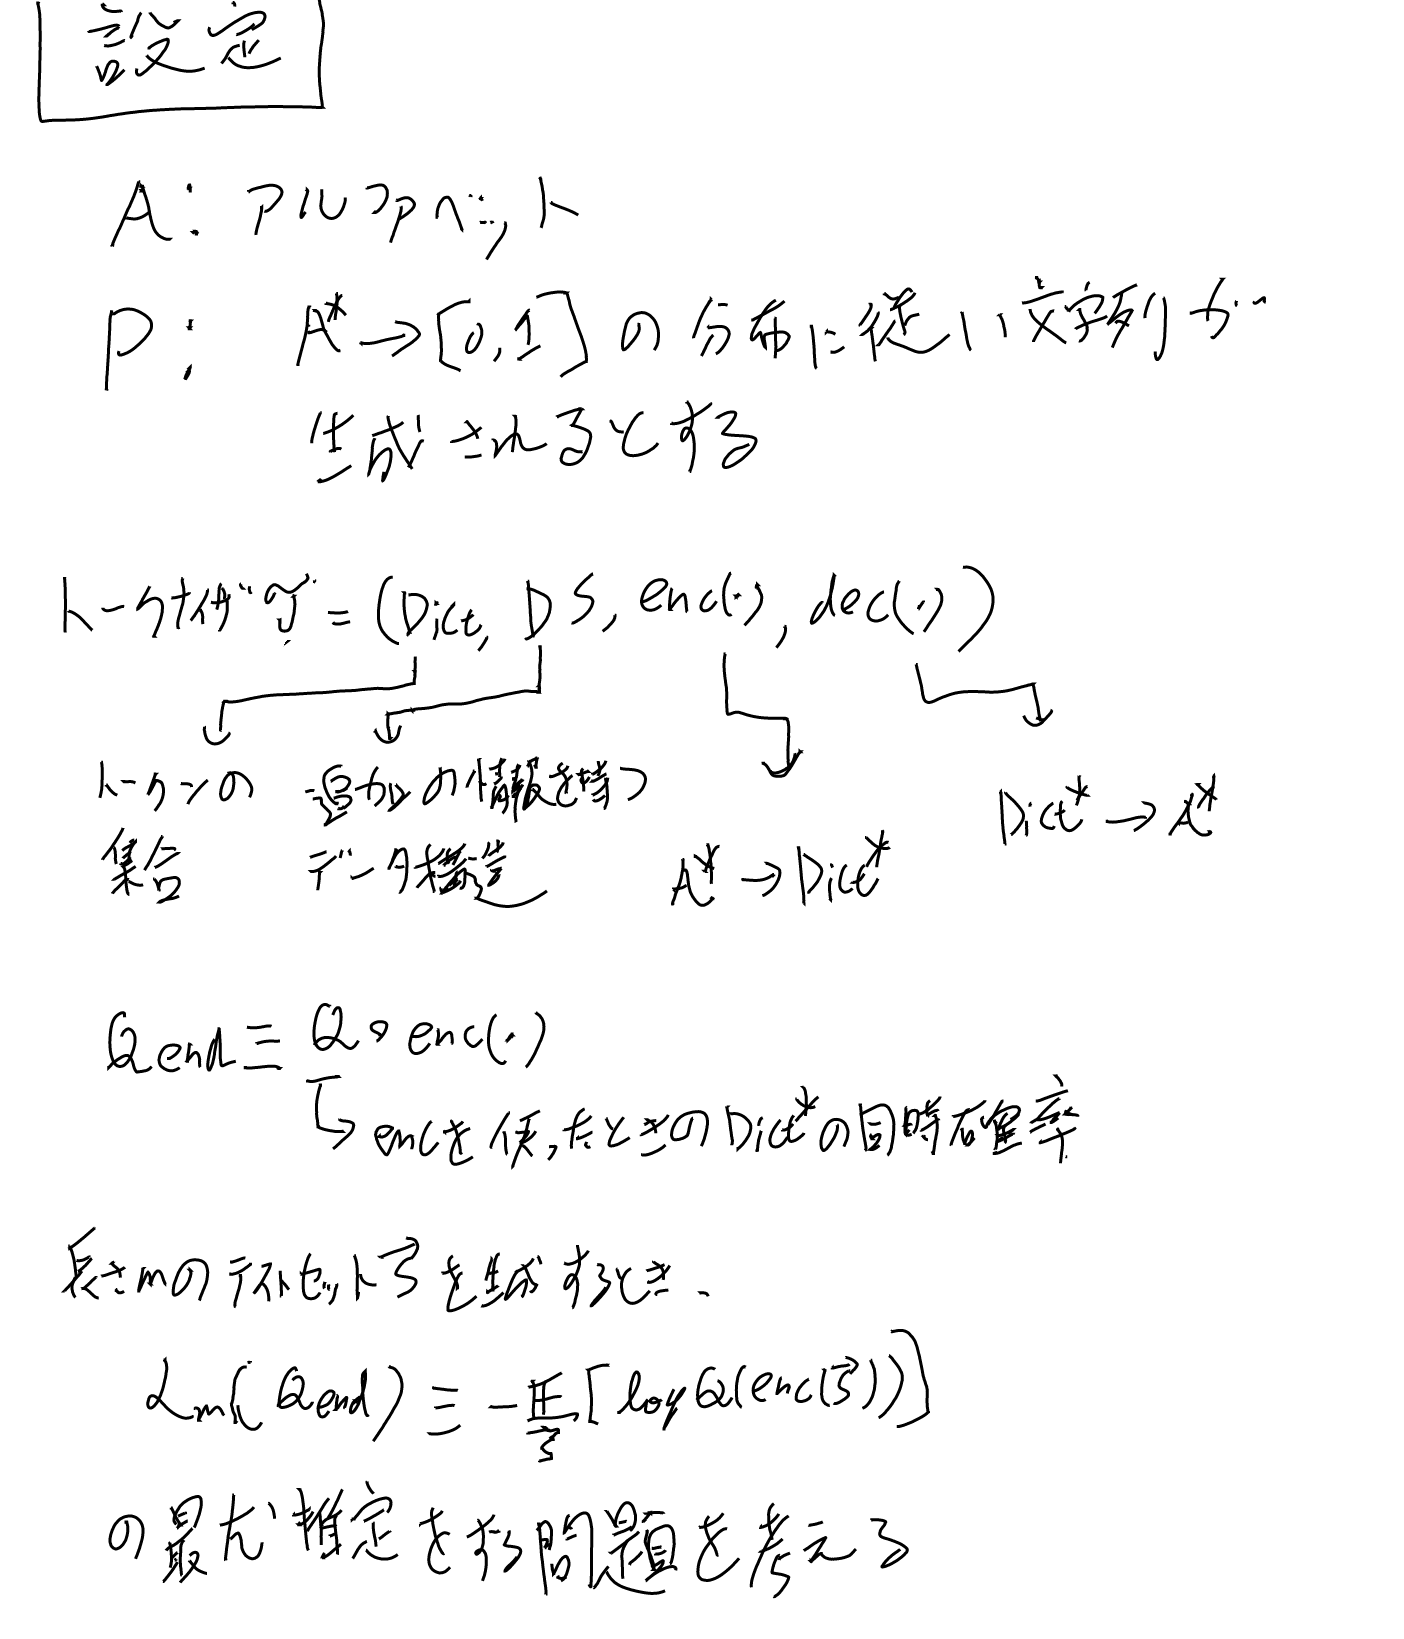 設定
A: アルファベット
P: A* → [0,1] の分布に従い文字列が
生成されるとする
トークナイザ 𝒯 = (Dict, DS, enc(·), dec(·))
トークンの 追加の情報を持つ
集合 データ構造
A* → Dict*
Dict* → A*
Qend ≡ Q ∘ enc(·)
encを使ったときのDict*の同時確率
長さmのテストセットs⃗を生成するとき、
ℒm(Qend) ≡ -𝔼s⃗[log Q(enc(s⃗))]
の最尤推定をする問題を考える